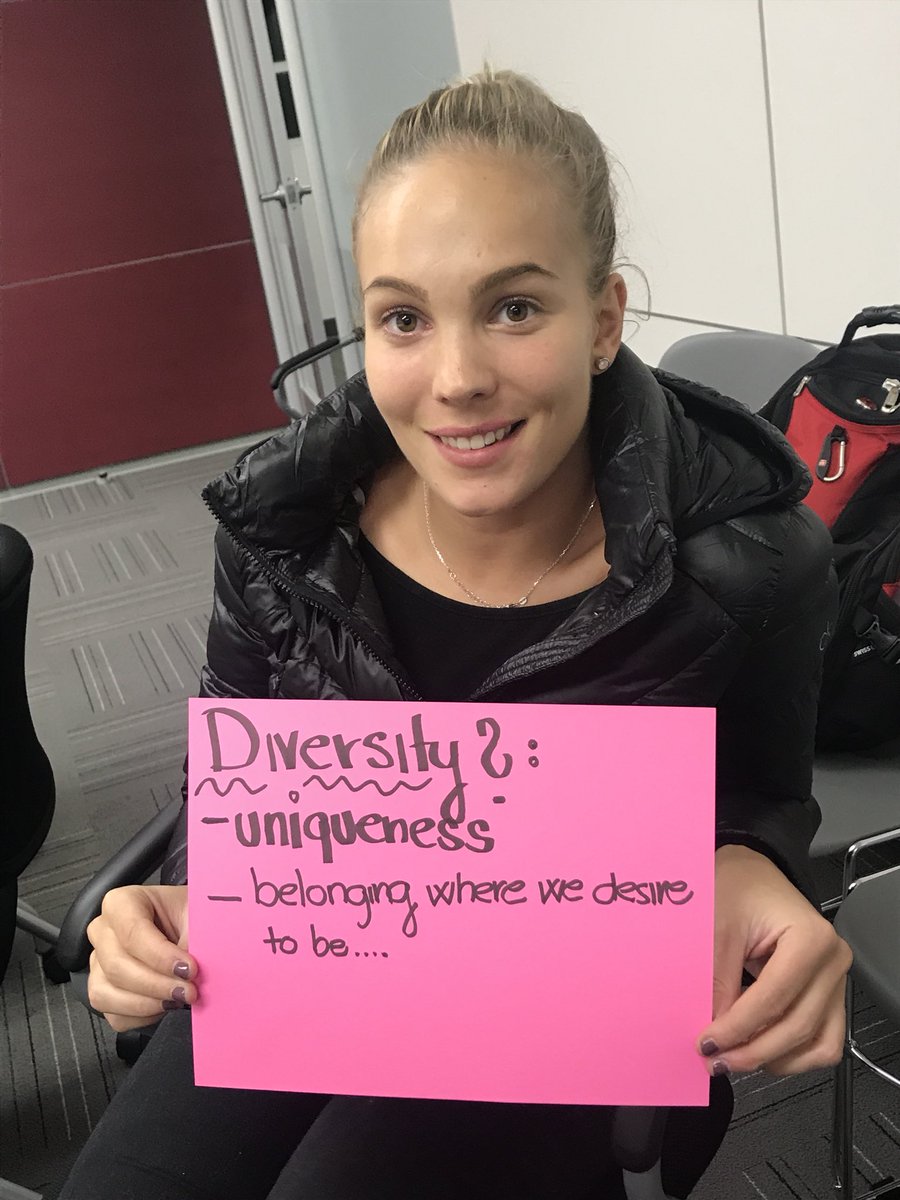 Diversity?:
- uniqueness
- belonging where we desire
to be....
SWISS